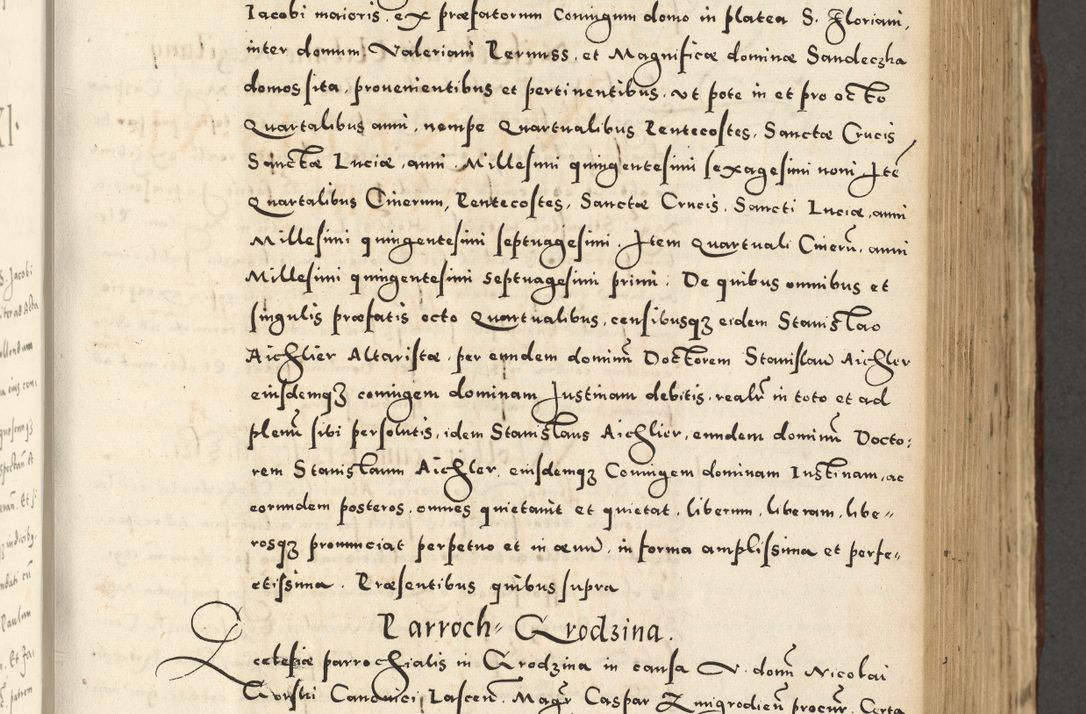 Iacobi maioris, ex præfatorum Coniugum domo in platea S. Floriani,
inter domum Valeriani Pernuss, et Magnificæ dominæ Sandeczka
domos sita, prouenientibus et pertinentibus, vt pote in et pro octo
Quartalibus anni, nempe Quartualibus Pentecostes, Sanctæ Crucis
Sanctæ Luciæ, anni Millesimi quingentesimi sexagesimi noni Itē
Quartalibus Cinerum, Pentecostes, Sanctæ Crucis, Sancti Luciæ, anni
Millesimi quingentesimi septuagesimi. Item Quartuali Cinerū, anni
Millesimi quingentesimi septuagesimi primi. De quibus omnibus et
singulis præfatis octo Quartualibus, censibusqȝ eidem Stanislao
Aichlier Altaristæ, per eundem dominū Doctorem Stanislaū Aichler
eiusdemqȝ coniugem dominam Justinam debitis, realr̄ in toto et ad
plenū sibi persolutis, idem Stanislaus Aichlier, eundem dominū Docto:
rem Stanislaum Aichler, eiusdemqȝ Coniugem dominam Iustinam, ac
eorundem posteros, omnes quietauit et quietat, liberum, liberam, libe„
rosqȝ pronunciat perpetuo et in æuū, in forma amplissima et perfe„
ctissima. Præsentibus quibus supra
Parroch„ Grodzina.
Ecclesiæ parrochialis in Grodzina in causa V. domī Nicolai
Gorski Canonici Lascen̄. Magr̄ Caspar Zmigrodien̄ procur̄. Certa
S. Jacobi